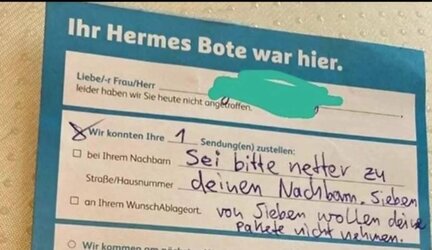 Ihr Hermes Bote war hier.
Liebe/-r Frau/Herr
leider haben wir Sie heute nicht angetroffen.
Wir konnten Ihre 1 Sendung(en) zustellen:
bei Ihrem Nachbarn Sei bitte netter zu
Straße/Hausnummer deinen Nachbarn. Sieben
an Ihrem WunschAblageort. von Sieben wollen deine
Pakete nicht nehmen.
Wir kommen am